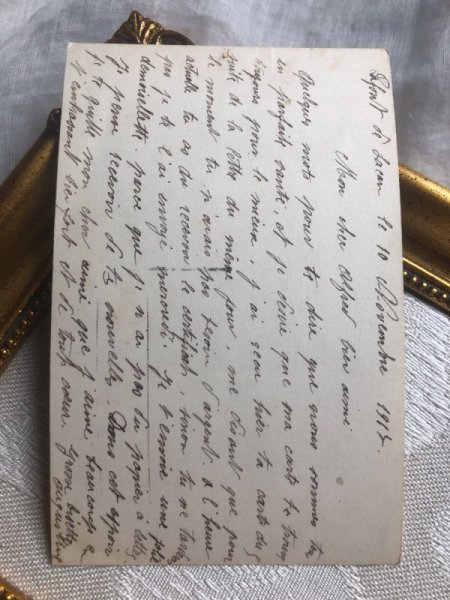 le 10 Novembre 1915
Mon cher Alfred bien aimé
Quelques mots pour te dire que nous sommes
en parfaite santé, et je désire que ma carte te trouve
toujours pour le mieux, j'ai reçu hier ta carte du 5
de la lettre du même jour. me disant que pour
le moment tu n'avais pas besoin d'argent. a l'heure
actuelle tu as du recevoir le certificat, sinon tu ne
que je te l'ai envoyé mercredi. je t'envoie une jolie
demoiselle. parce que je n'ai pas de papier à lettre
recevoir de tes nouvelles. Dans cet espoir
je te quitte mon cher aimé que j'aime beaucoup
t'embrassant bien fort et de tout coeur